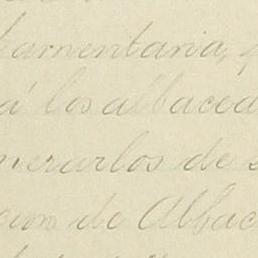 tamentaria,
á los albacea
nerarlos de s
cion de Albac